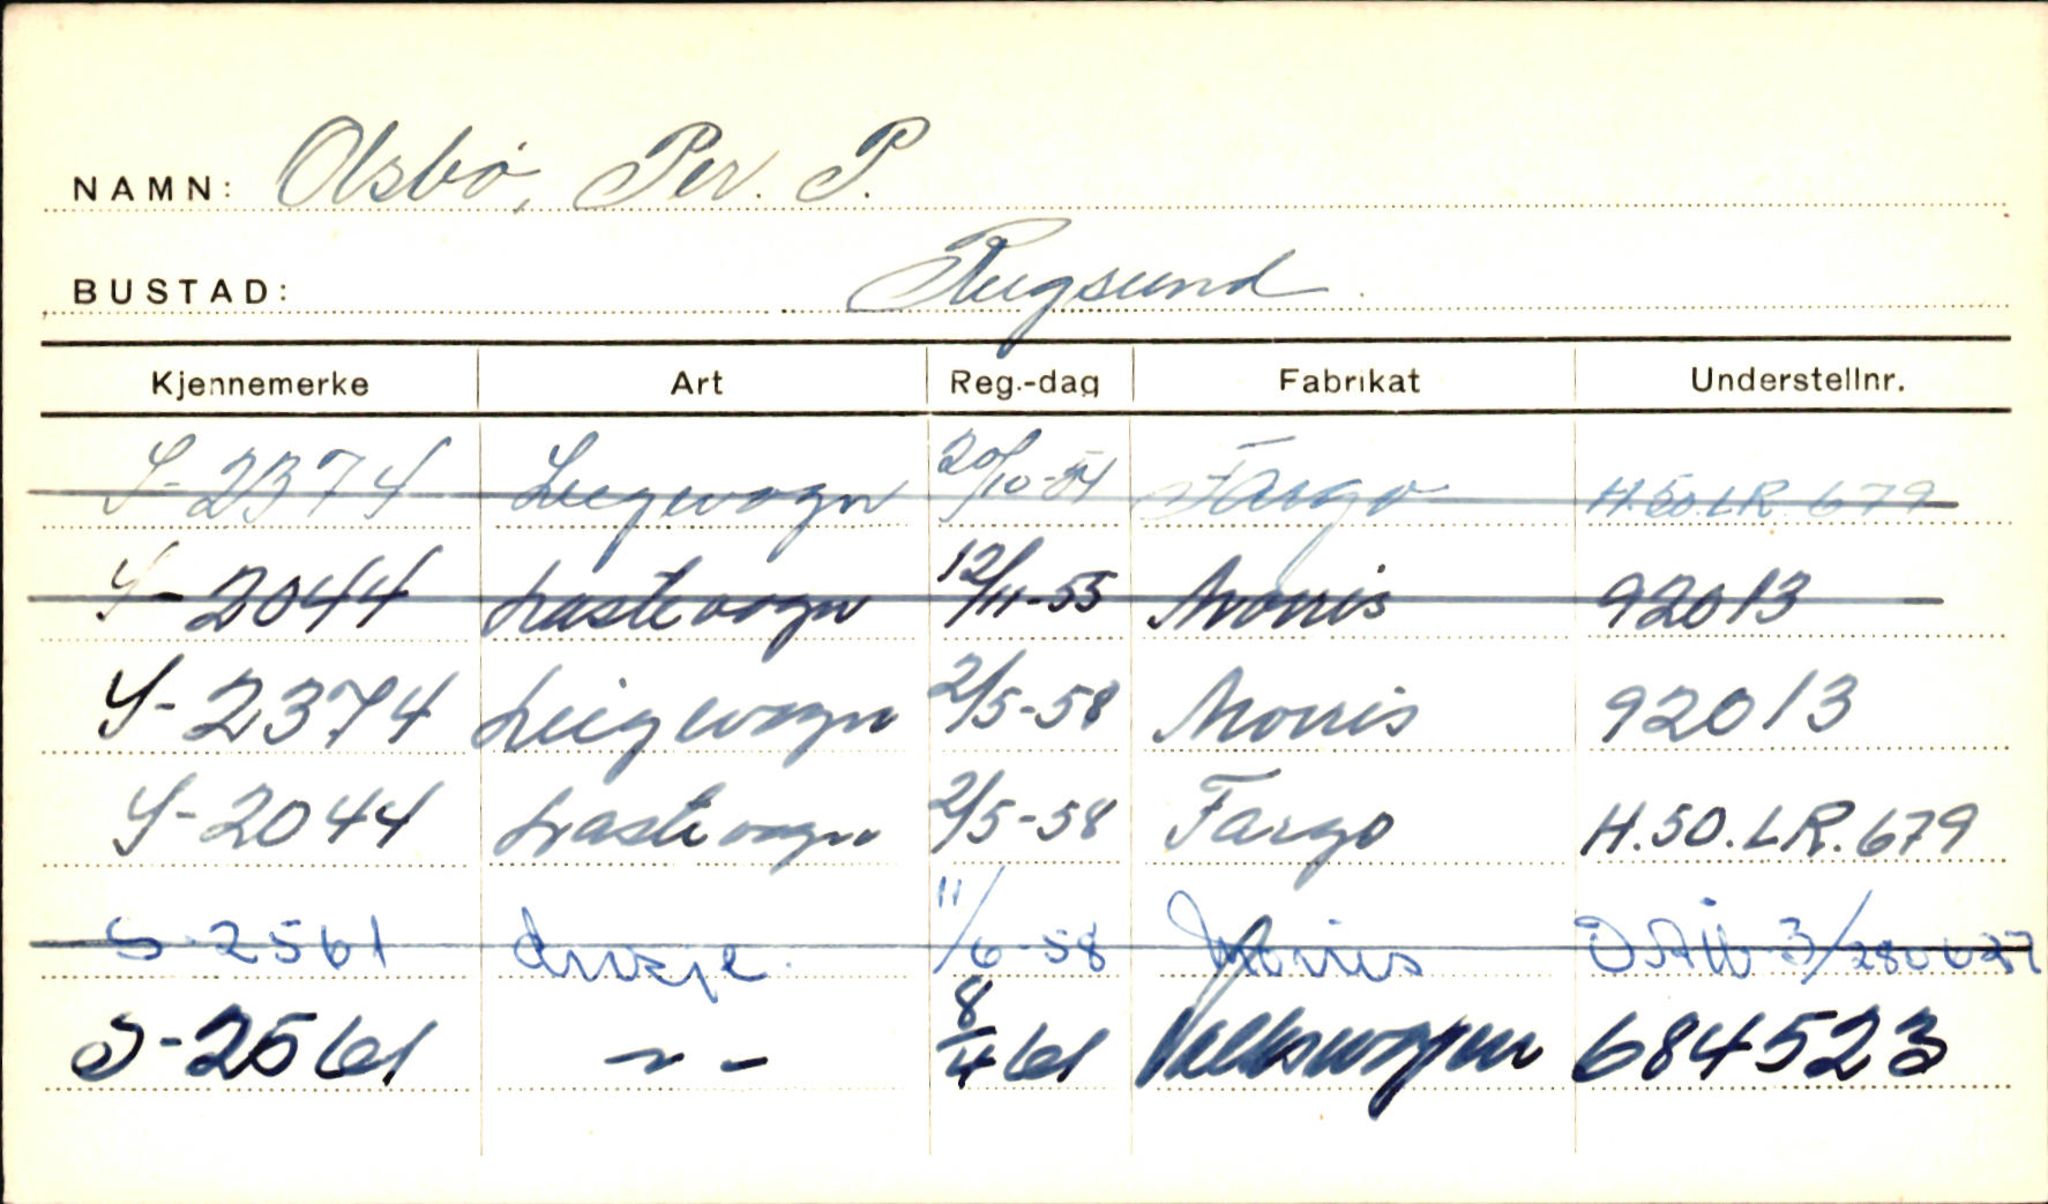 NAMN: Olsbø, Per. P.
BUSTAD: Rugsund
Kjennemerke Art Reg.-dag Fabrikat Understellnr.
S-2374 Leigevogn 20/10-54 Fargo H.50.LR.679
S-2044 Lastevogn 12/11-55 Morris 92013
S-2374 Leigevogn 2/5-58 Morris 92013
S-2044 Lastevogn 2/5-58 Fargo H.50.LR.679
S-2561 drosje. 11/6-58 Morris
S-2561 -- 8/4 61 Volkswagen 684523